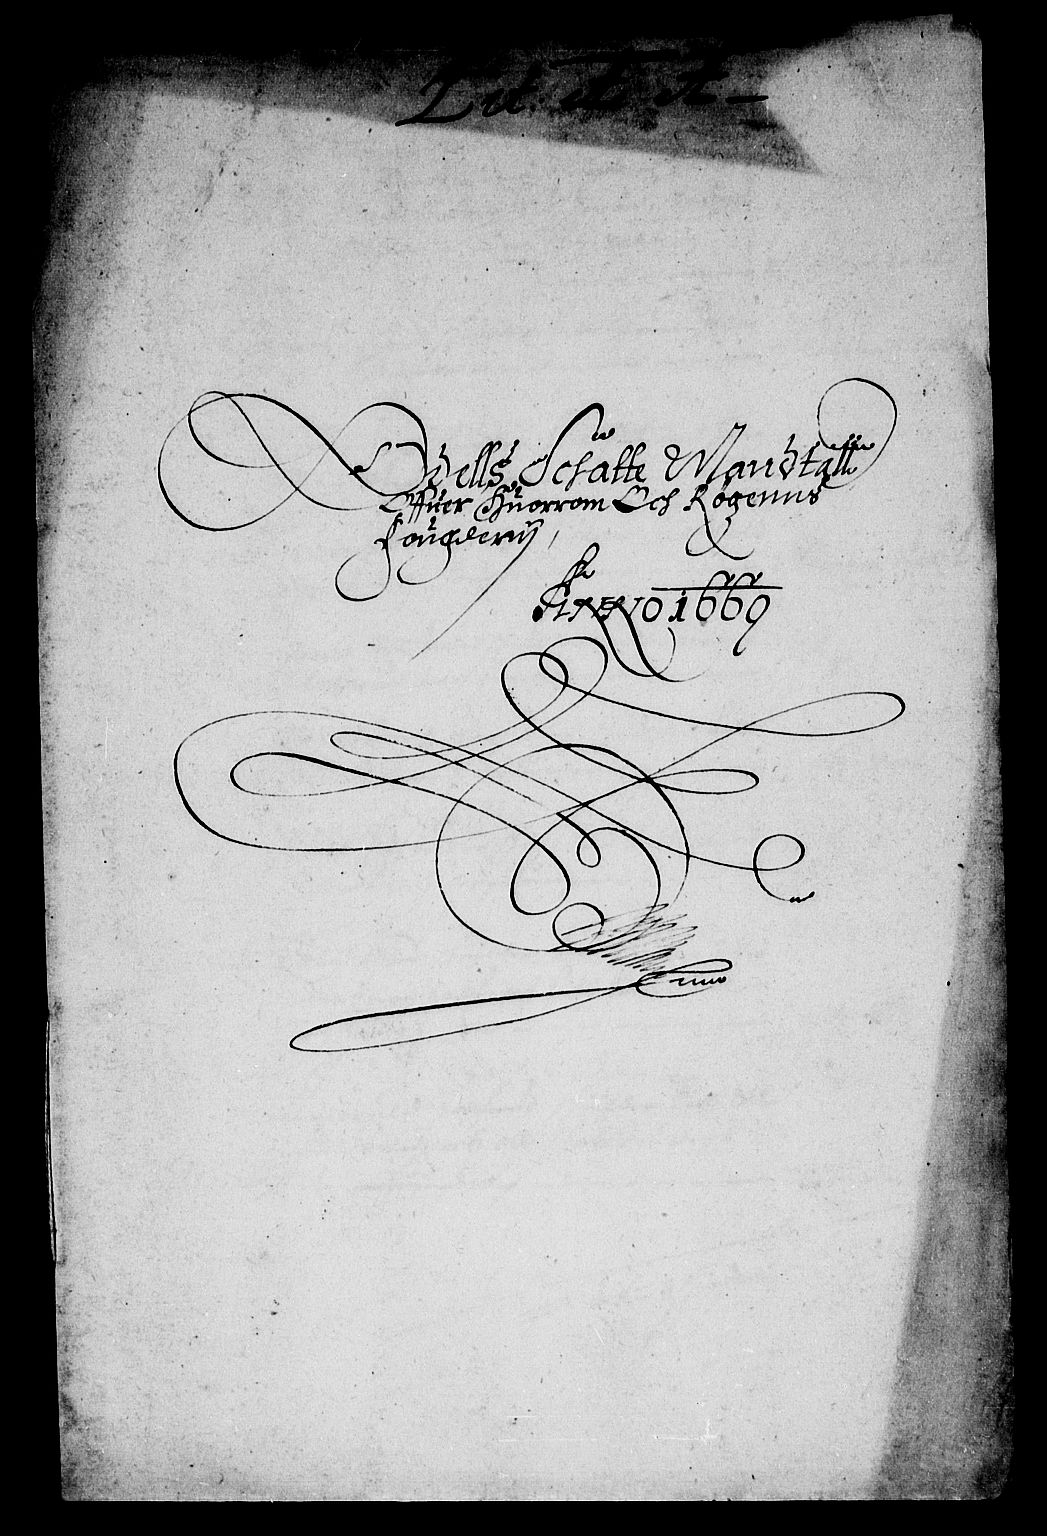 Odells Schatte Mandtall
Offuer Huorrom Och Røgenns
fougderij,
ANNO 1669